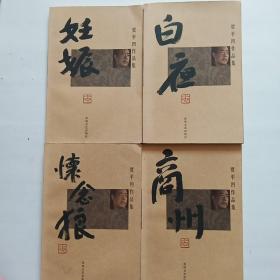 妊娠
贾平凹作品集
白夜
贾平凹作品集
怀念狼
贾平凹作品集
商州
贾平凹作品集